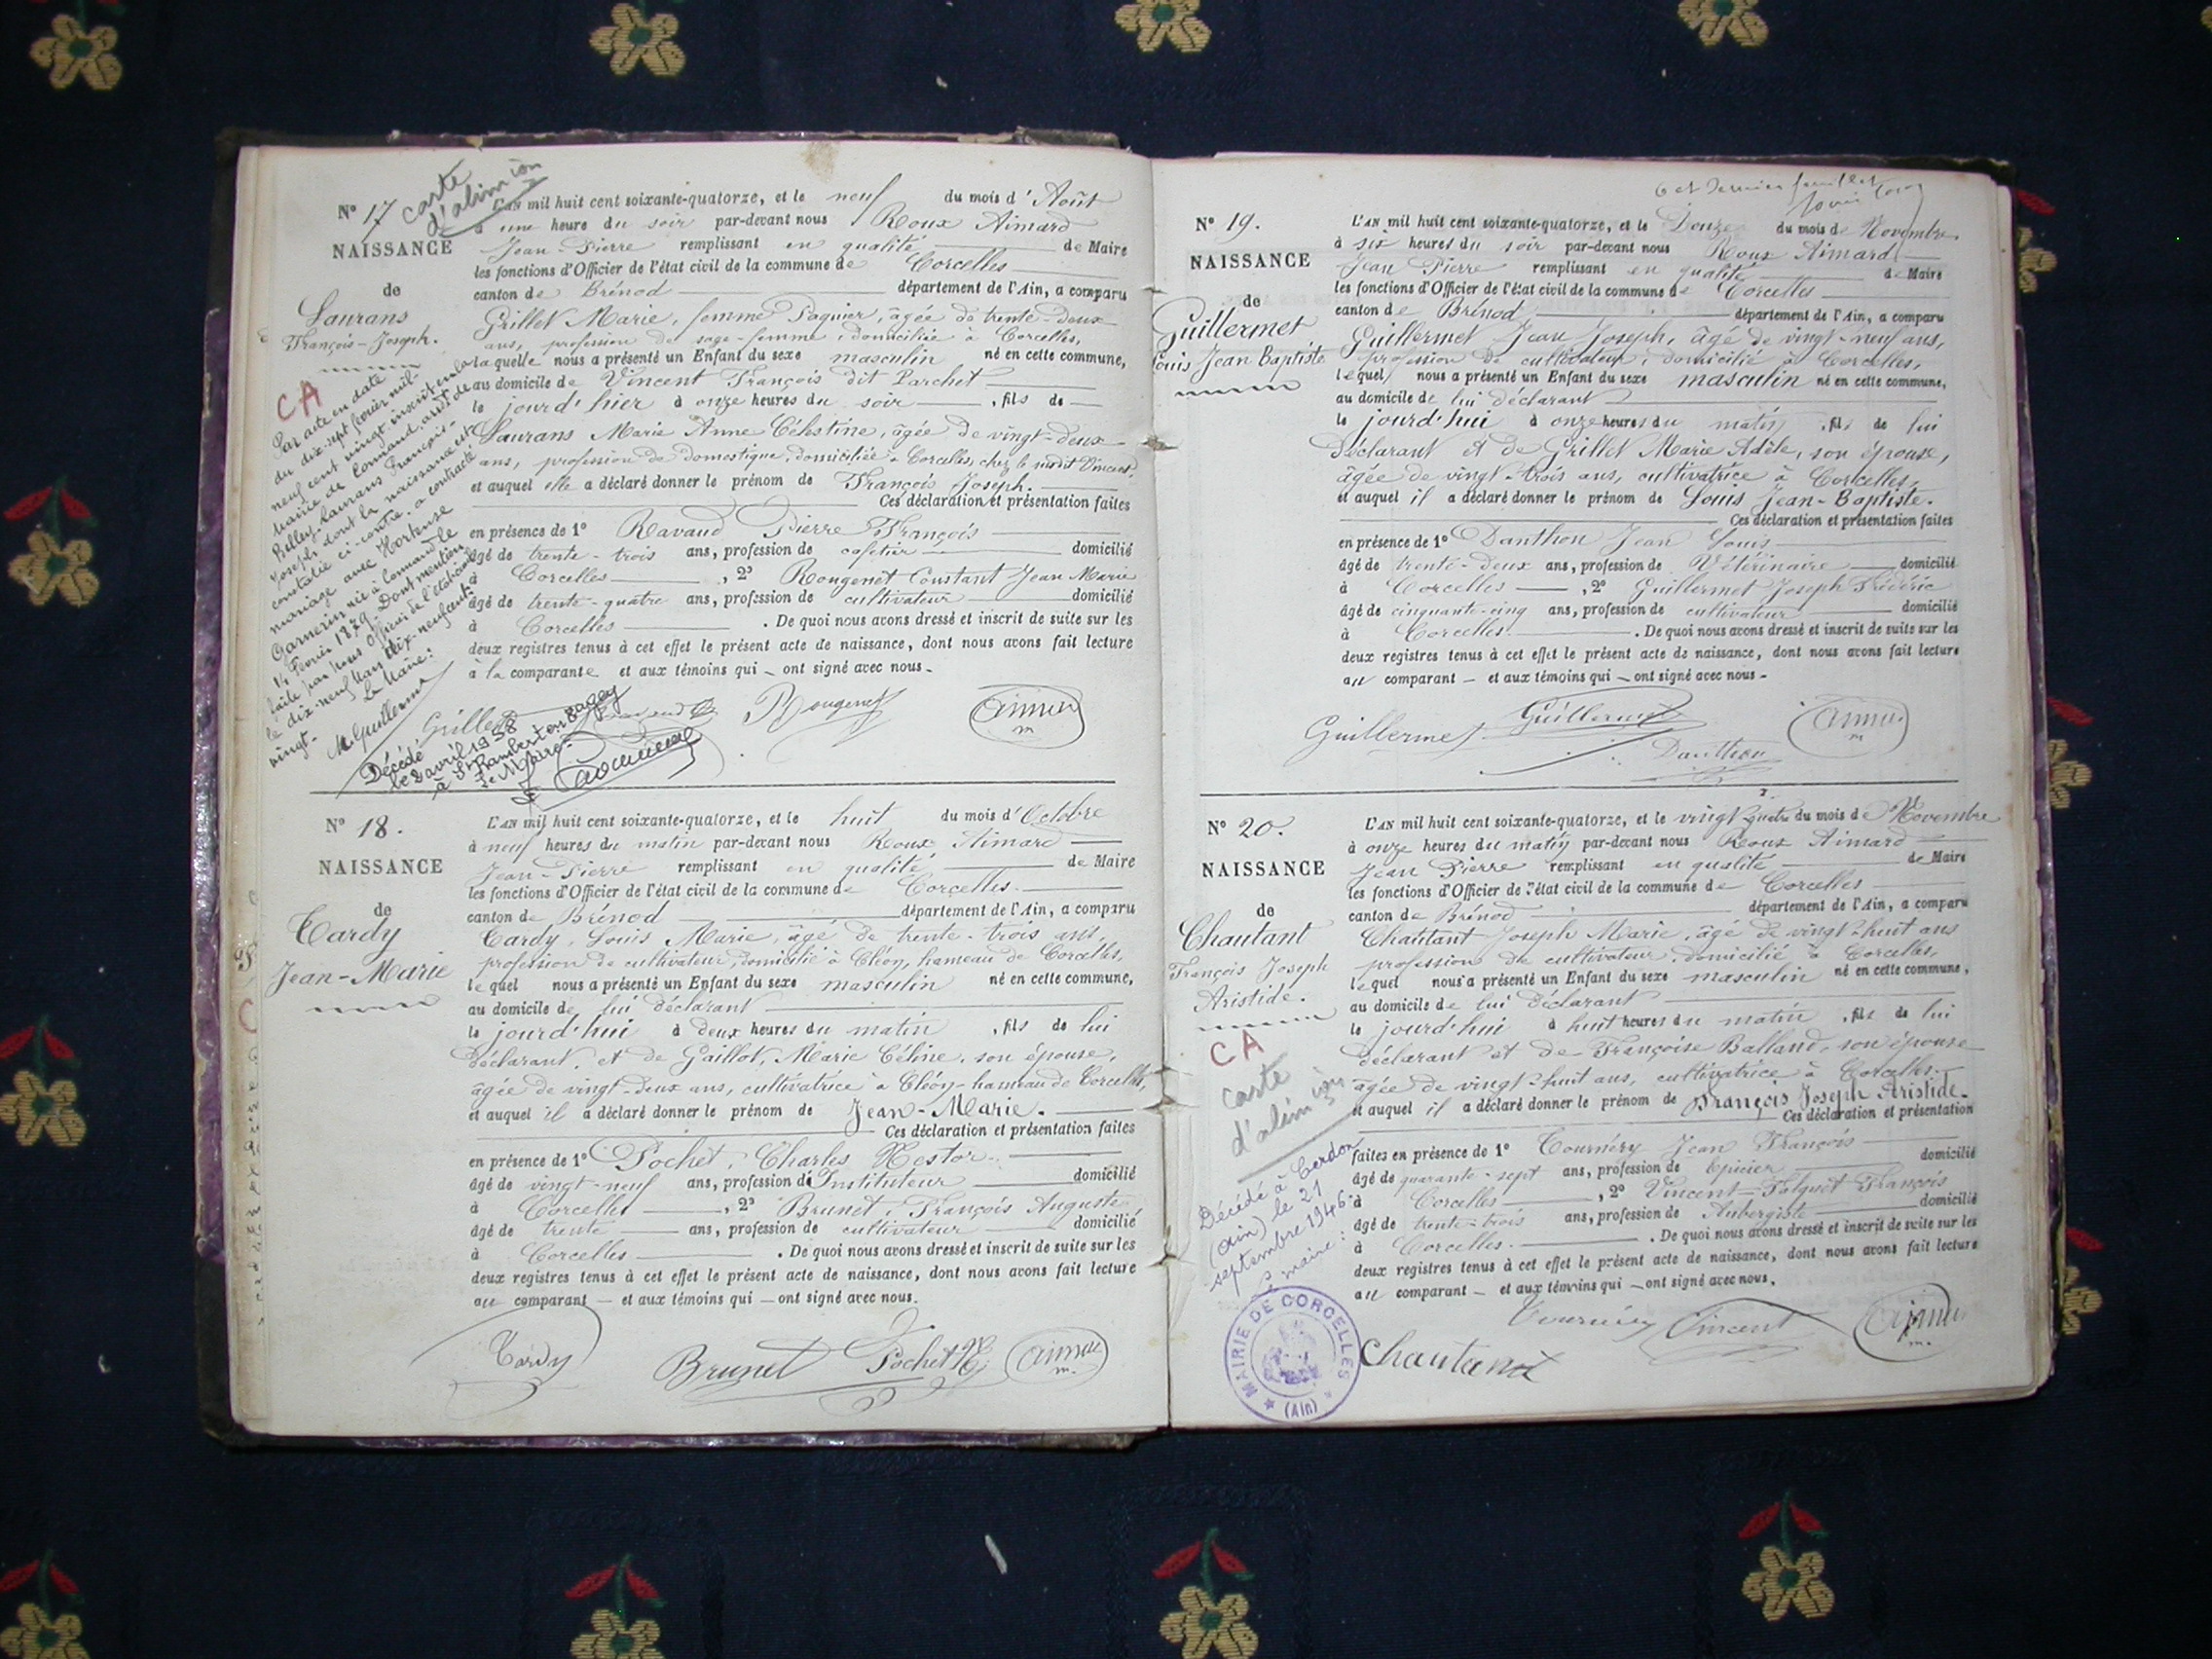 carte
d'alim ion
N° 17
NAISSANCE
de
Laurans
François-Joseph.
L'AN mil huit cent soixante-quatorze, et le neuf du mois d'Août
à une heure du soir par-devant nous Roux Aimard
Jean-Pierre remplissant en qualité de Maire
les fonctions d'Officier de l'état civil de la commune de Corcelles
canton de Brénod département de l'Ain, a comparu
Grillet Marie, femme Paquier, âgée de trente-deux
ans, profession de sage-femme, domiciliée à Corcelles,
laquelle nous a présenté un Enfant du sexe masculin né en cette commune,
au domicile de Vincent François dit Parchet
le jourd'hier à onze heures du soir, fils de
Laurans Marie Anne Célestine, âgée de vingt-deux
ans, profession de domestique, domiciliée à Corcelles, chez le susdit Vincent,
et auquel elle a déclaré donner le prénom de François Joseph.
Ces déclaration et présentation faites
en présence de 1° Ravaud Pierre François
âgé de trente-trois ans, profession de cafetier domicilié
à Corcelles, 2° Rougenet Constant Jean Marie
âgé de trente-quatre ans, profession de cultivateur domicilié
à Corcelles. De quoi nous avons dressé et inscrit de suite sur les
deux registres tenus à cet effet le présent acte de naissance, dont nous avons fait lecture
à la comparante et aux témoins qui ont signé avec nous.
CA
Par acte en date
du dix-sept février mil-
neuf cent vingt inscrit en la
mairie de Lomnand, arrt de
Belley, Laurans François-
Joseph dont la naissance est
constatée ci-contre a contracté
mariage avec Hortense
Garnerin née à Lomnand le
14 Février 1879. Dont mention
faite par nous Officier de l'état civil
le dix-neuf Mars dix-neuf cent
vingt. Le Maire:
M. Guillermet
Grillet Ravaud Rougenet Aimard
m
Décédé
le 2 avril 1958
à St Rambert en Bugey
Le Maire
N° 18.
NAISSANCE
de
Tardy
Jean-Marie
L'AN mil huit cent soixante-quatorze, et le huit du mois d'Octobre
à neuf heures du matin par-devant nous Roux Aimard
Jean-Pierre remplissant en qualité de Maire
les fonctions d'Officier de l'état civil de la commune de Corcelles.
canton de Brénod département de l'Ain, a comparu
Tardy, Louis Marie, âgé de trente-trois ans,
profession de cultivateur, domicilié à Cléon, hameau de Corcelles,
lequel nous a présenté un Enfant du sexe masculin né en cette commune,
au domicile de lui déclarant
le jourd'hui à deux heures du matin, fils de lui
déclarant, et de Gaillot, Marie Céline, son épouse,
âgée de vingt-deux ans, cultivatrice à Cléon-hameau de Corcelles,
et auquel il a déclaré donner le prénom de Jean-Marie.
Ces déclaration et présentation faites
en présence de 1° Pochet, Charles Nestor
âgé de vingt-neuf ans, profession de Instituteur domicilié
à Corcelles, 2° Brunet, François Auguste
âgé de trente ans, profession de cultivateur domicilié
à Corcelles. De quoi nous avons dressé et inscrit de suite sur les
deux registres tenus à cet effet le présent acte de naissance, dont nous avons fait lecture
au comparant et aux témoins qui ont signé avec nous.
Tardy Brunet Pochet Aimard
m.
6 et dernier feuillet
N° 19.
NAISSANCE
de
Guillermet
Louis Jean Baptiste
L'AN mil huit cent soixante-quatorze, et le Douze du mois de Novembre
à six heures du soir par-devant nous Roux Aimard
Jean Pierre remplissant en qualité de Maire
les fonctions d'Officier de l'état civil de la commune de Corcelles
canton de Brénod département de l'Ain, a comparu
Guillermet Jean Joseph, âgé de vingt-neuf ans,
profession de cultivateur, domicilié à Corcelles,
lequel nous a présenté un Enfant du sexe masculin né en cette commune,
au domicile de lui déclarant
le jourd'hui à onze heures du matin, fils de lui
déclarant et de Grillet Marie Adèle, son épouse,
âgée de vingt-trois ans, cultivatrice à Corcelles,
et auquel il a déclaré donner le prénom de Louis Jean-Baptiste.
Ces déclaration et présentation faites
en présence de 1° Danthon Jean Louis
âgé de trente-deux ans, profession de Vétérinaire domicilié
à Corcelles, 2° Guillermet Joseph Frédéric
âgé de cinquante-cinq ans, profession de cultivateur domicilié
à Corcelles. De quoi nous avons dressé et inscrit de suite sur les
deux registres tenus à cet effet le présent acte de naissance, dont nous avons fait lecture
au comparant et aux témoins qui ont signé avec nous.
Guillermet Guillermet Aimard
m
Danthon
N° 20.
NAISSANCE
de
Chautant
François Joseph
Aristide.
L'AN mil huit cent soixante-quatorze, et le vingt-quatre du mois de Novembre
à onze heures du matin par-devant nous Roux Aimard
Jean Pierre remplissant en qualité de Maire
les fonctions d'Officier de l'état civil de la commune de Corcelles
canton de Brénod département de l'Ain, a comparu
Chautant Joseph Marie, âgé de vingt-huit ans
profession de cultivateur, domicilié à Corcelles,
lequel nous a présenté un Enfant du sexe masculin né en cette commune,
au domicile de lui déclarant
le jourd'hui à huit heures du matin, fils de lui
déclarant et de Françoise Balland, son épouse
âgée de vingt-huit ans, cultivatrice à Corcelles.
et auquel il a déclaré donner le prénom de François Joseph Aristide.
Ces déclaration et présentation
faites en présence de 1° Tournéry Jean François
âgé de quarante-sept ans, profession de Epicier domicilié
à Corcelles, 2° Vincent-Falquet François
âgé de trente-trois ans, profession de Aubergiste domicilié
à Corcelles. De quoi nous avons dressé et inscrit de suite sur les
deux registres tenus à cet effet le présent acte de naissance, dont nous avons fait lecture
au comparant et aux témoins qui ont signé avec nous.
CA
carte
d'alim ion
Décédé à Cerdon
(Ain) le 21
septembre 1946
Le maire:
MAIRIE DE CORCELLES
(Ain)
Tournéry Vincent Aimard
m.
Chautant